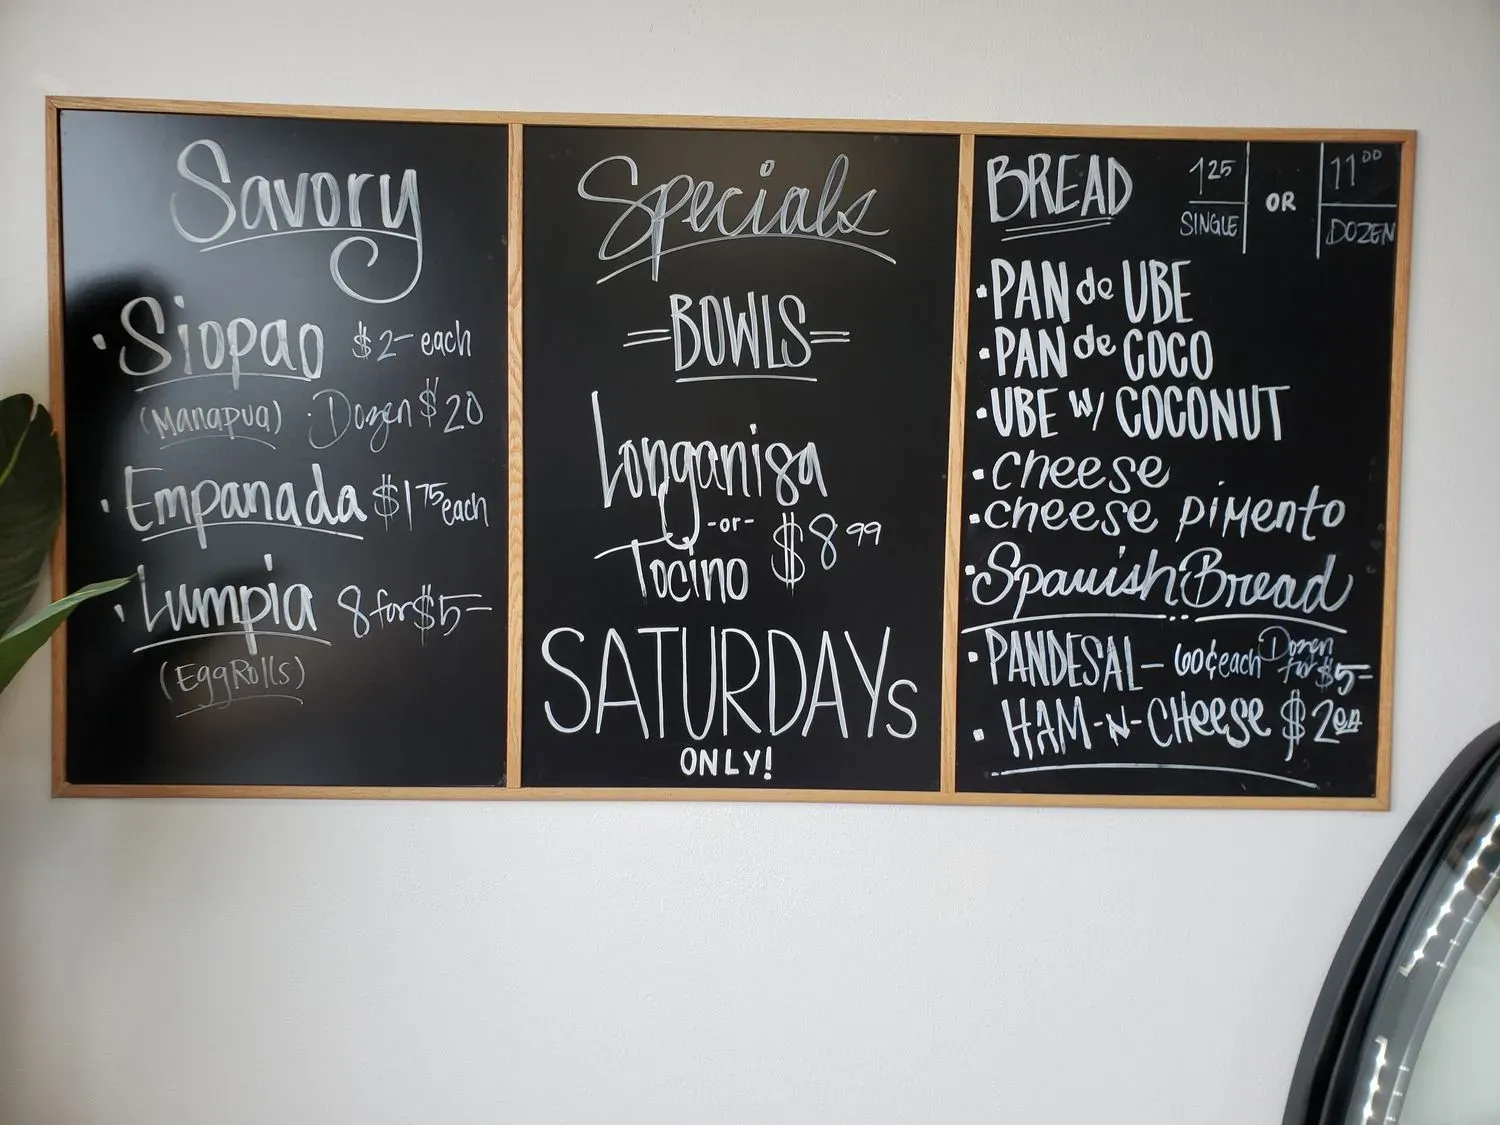 Savory
· Siopao $2- each
(Manapua) · Dozen $20
· Empanada $1 75 each
· Lumpia 8 for $5-
(EggRolls)
Specials
=BOWLS=
Longanisa
-or-
Tocino $8 99
SATURDAYs
ONLY!
BREAD 1 25 SINGLE OR 11 00 DOZEN
· PAN de UBE
· PAN de COCO
· UBE w/ COCONUT
· cheese
· cheese pimento
· Spanish Bread
· PANDESAL - 60¢ each Dozen for $5-
· HAM-N-CHeese $2 ea